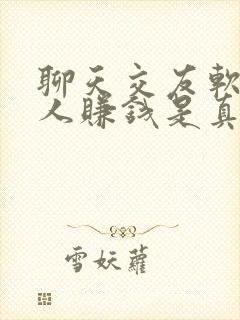 聊天交友軟
人賺錢是真
雪妖蘿